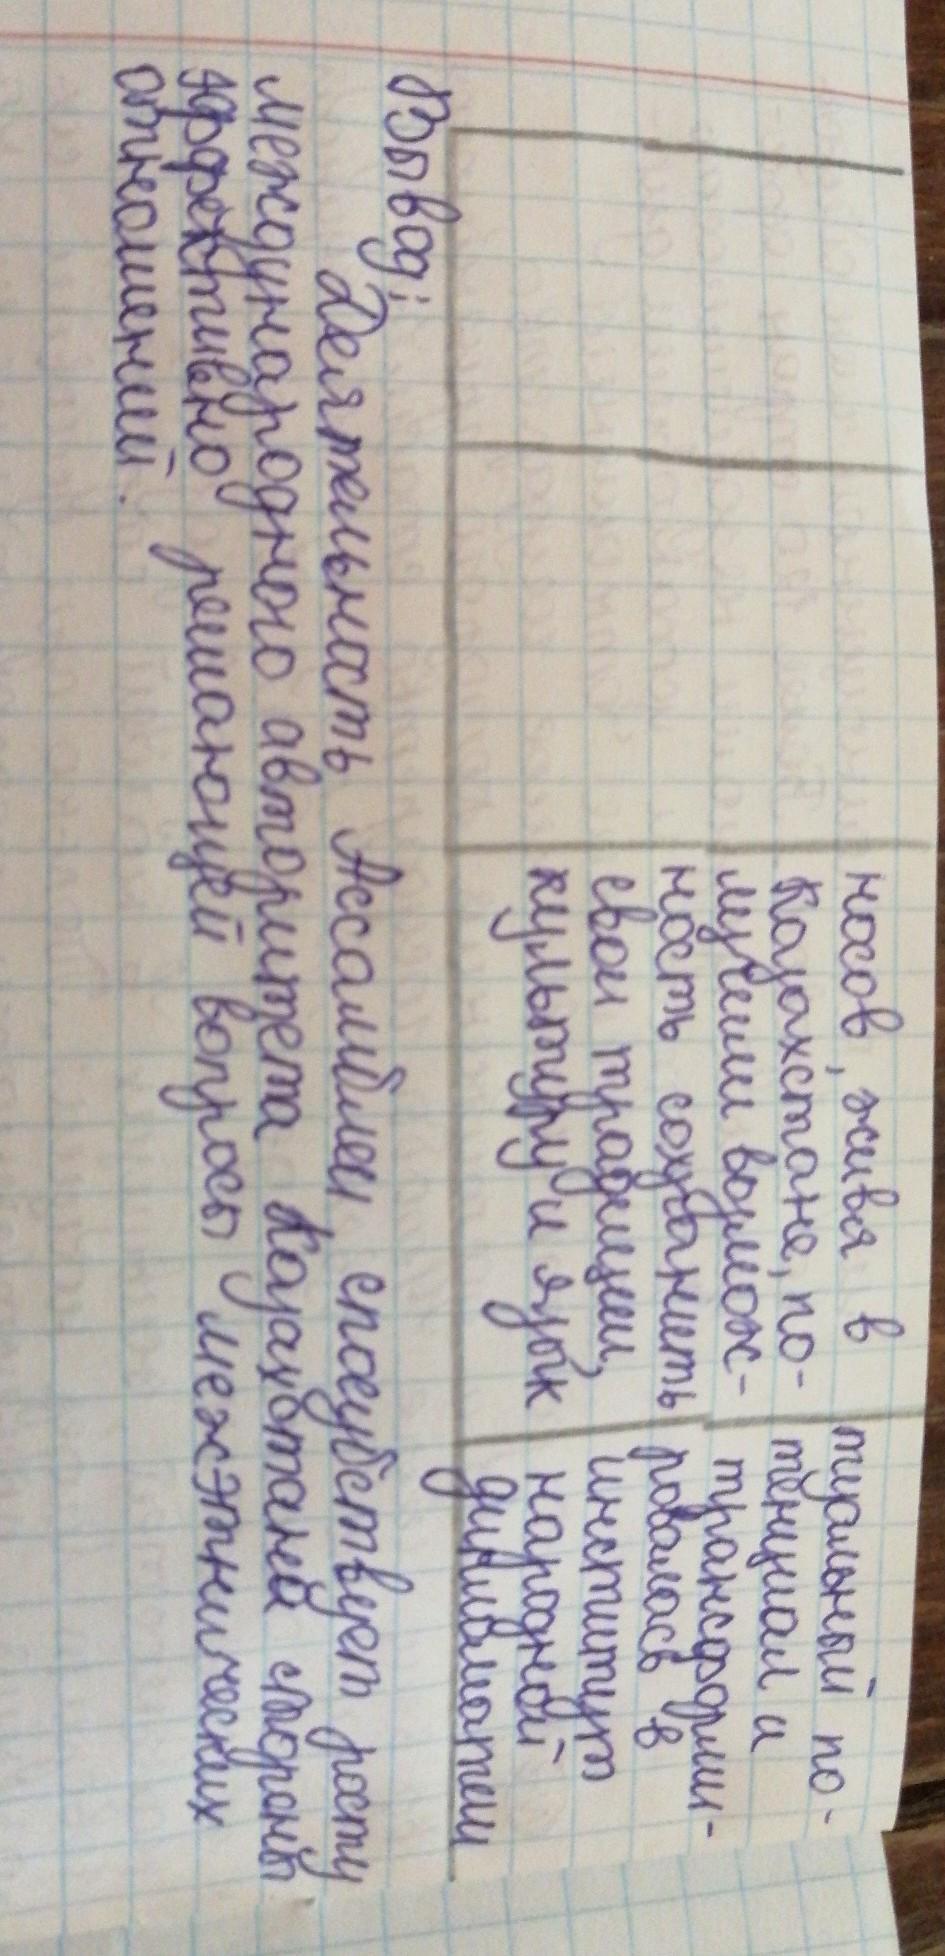 носов, живя в
Казахстане, по-
лучили возмож-
ность сохранить
свои традиции,
культуру и язык
туальный по-
тенциал и
трансформи-
ровалась в
институт
народной
дипломатии
Вывод:
Деятельность Ассамблеи способствует росту
международного авторитета Казахстана стороны
эффективно решающей вопросы межэтнических
отношений.